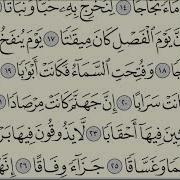 مَآءً ثَجَّاجًا ١٤ لِّنُخْرِجَ بِهِۦ حَبًّا وَنَبَاتًا
نَّ يَوْمَ ٱلْفَصْلِ كَانَ مِيقَٰتًا ١٧ يَوْمَ يُنفَخُ
جًا ١٨ وَفُتِحَتِ ٱلسَّمَآءُ فَكَانَتْ أَبْوَٰبًا ١٩
نَتْ سَرَابًا ٢٠ إِنَّ جَهَنَّمَ كَانَتْ مِرْصَادًا
ثِينَ فِيهَآ أَحْقَابًا ٢٣ لَّا يَذُوقُونَ فِيهَا بَرْ
مًا وَغَسَّاقًا ٢٥ جَزَآءً وِفَاقًا ٢٦ إِنَّهُ